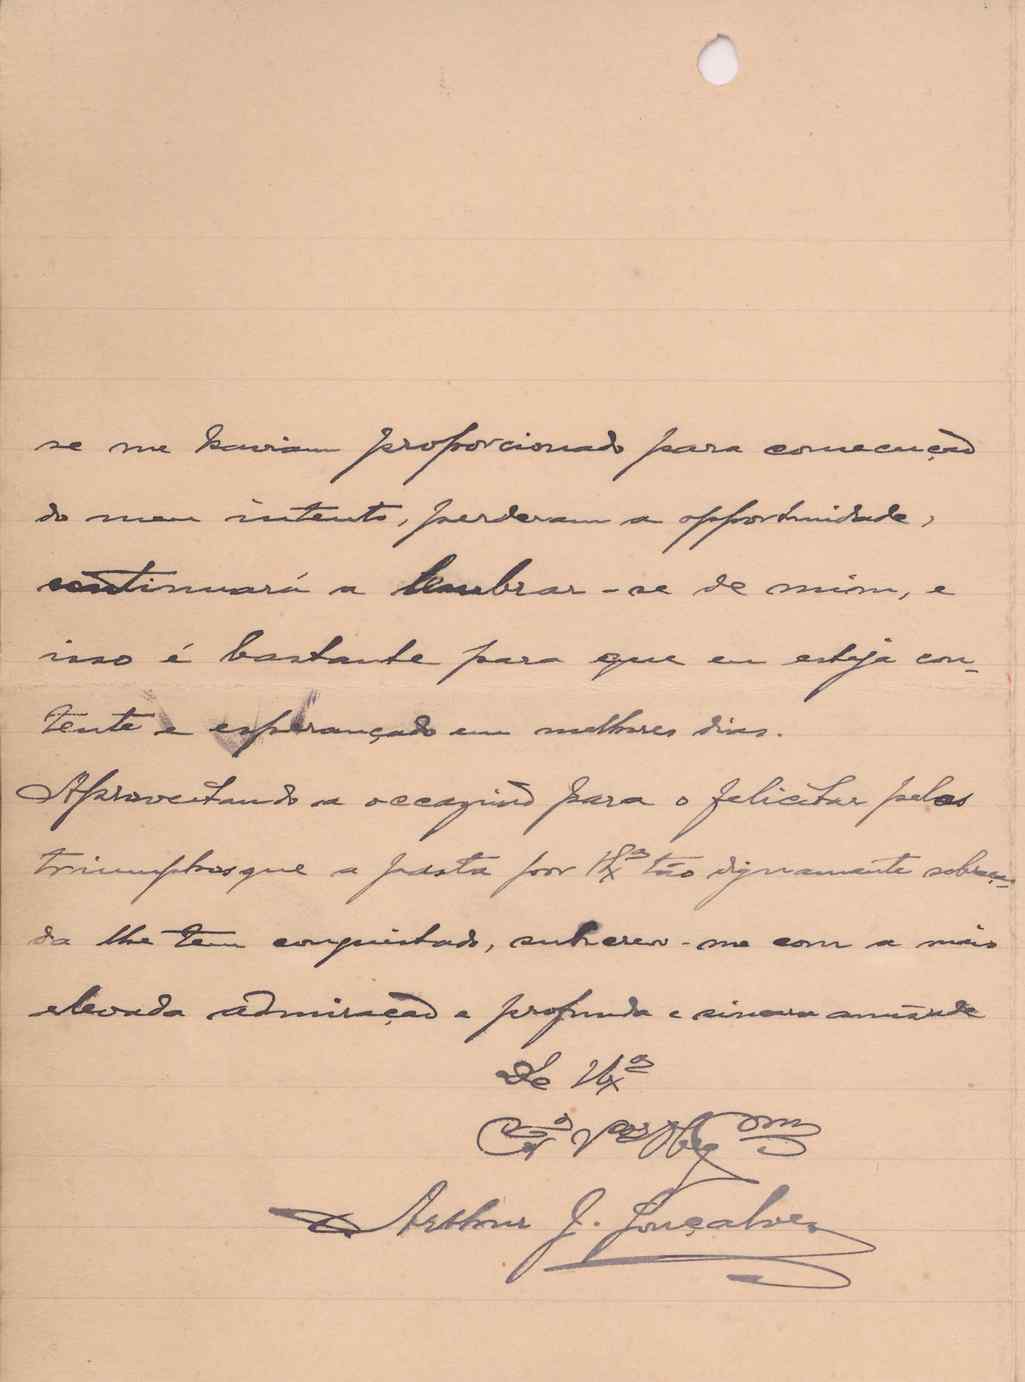 se me haviam proporcionado para consecução
do meu intento, perderam a opportunidade,
continuará a lembrar-se de mim, e
isso é bastante para que eu esteja con-
tente e esperançado em melhores dias.
Aproveitando a occazião para o felicitar pelos
triumphos que a pasta por V. Exª tão dignamente sobraça-
da lhe tem conquistado, subscrevo-me com a mais
elevada admiração e profunda e sincera amizade
De V. Exª
Arthur J. Gonçalves